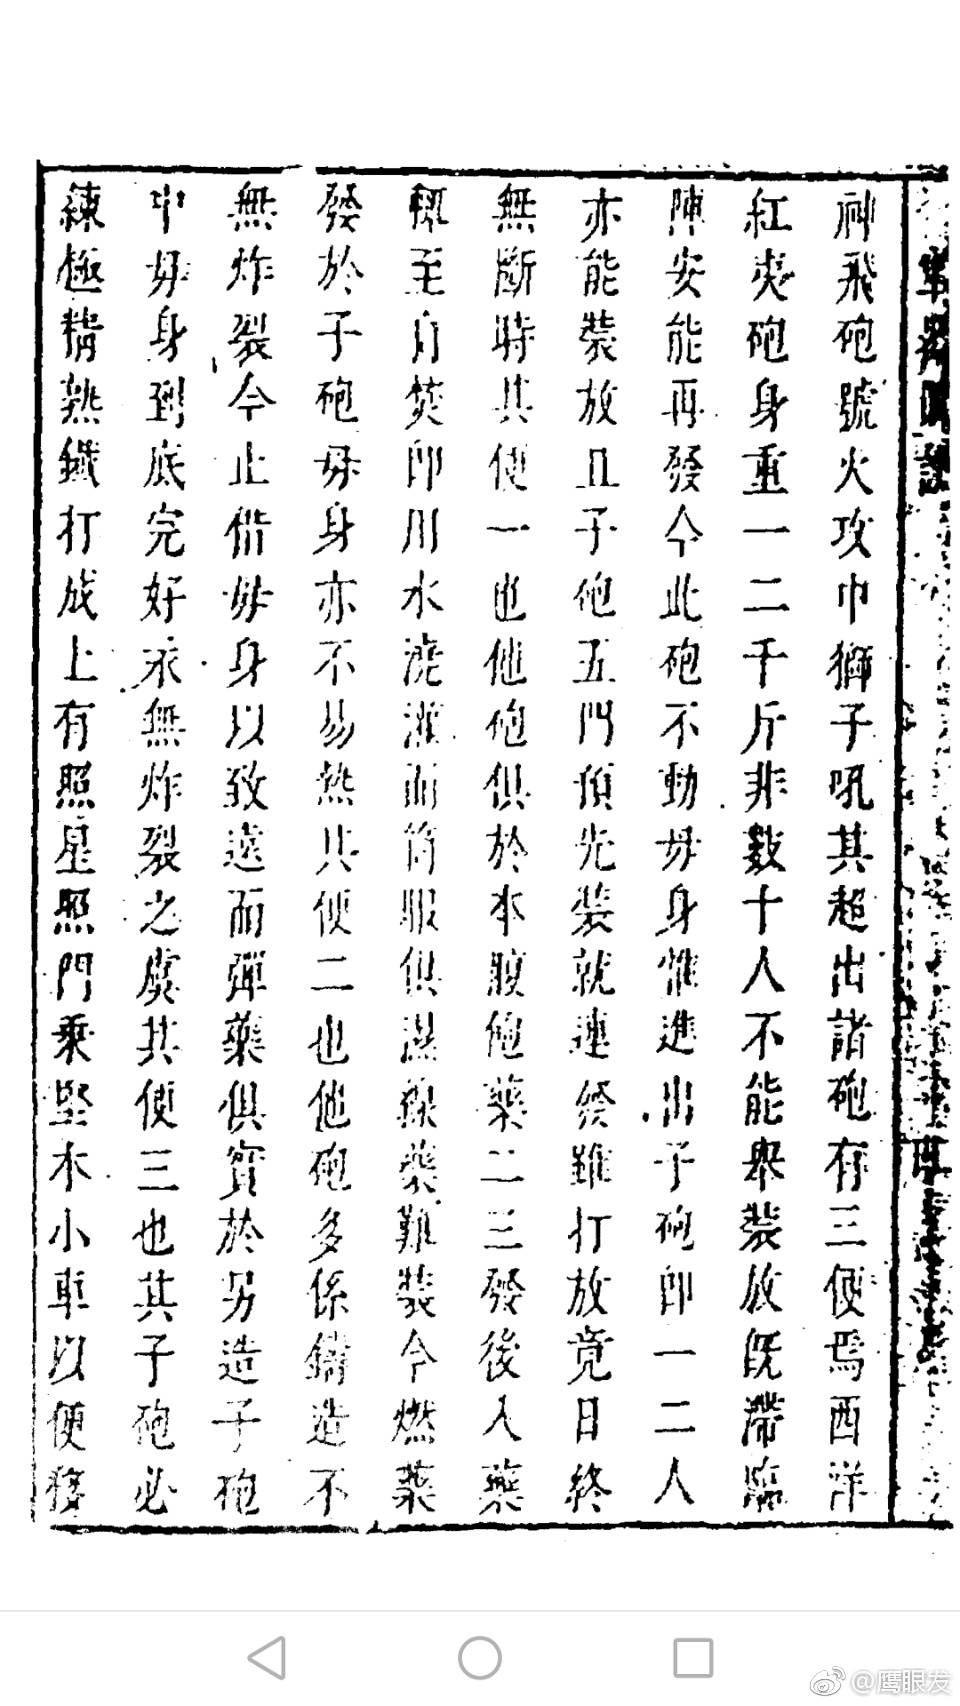 神飛砲號火攻中獅子吼其超出諸砲有三便焉西洋
紅夷砲身重一二千斤非數十人不能舉裝放既滯臨
陣安能再發今此砲不動母身惟進出子砲即一二人
亦能裝放且子砲五門預先裝就連發雖打放竟日終
無斷時其便一也他砲俱於本腹飽藥二三發後入藥
輒至自焚即用水澆灌而筒眼俱濕線藥難裝今燃藥
發於子砲母身亦不易熱其便二也他砲多係鑄造不
無炸裂今止借母身以致遠而彈藥俱實於另造子砲
中母身到底完好永無炸裂之虞其便三也其子砲必
練極精熟鐵打成上有照星照門乘堅木小車以便移
鹰眼发